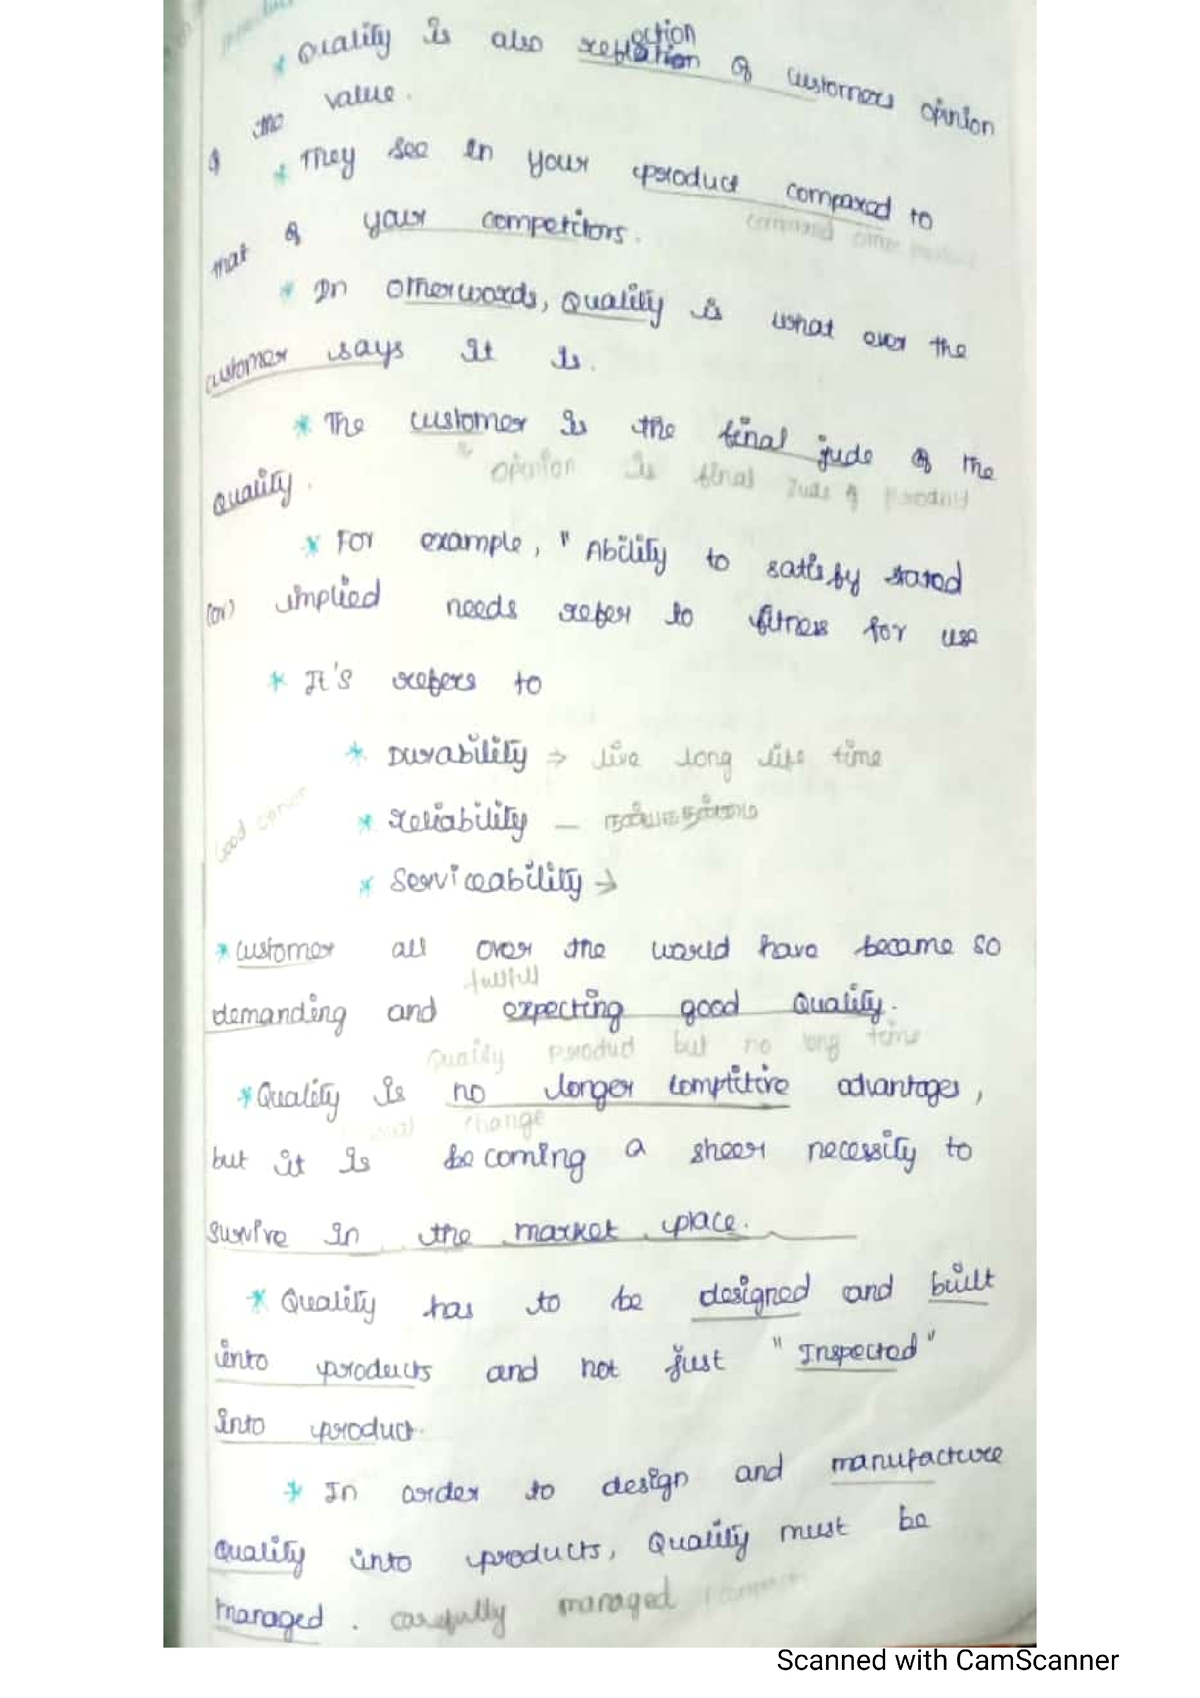 * Quality is also reflection of customers opinion
of the value.
* They see in your product compared to
that of your competitors.
* In otherwords, Quality is what ever the
customer says it is.
* The customer is the final jude of the
Quality.
opinion is final jude of product
* For example, " Ability to satisfy stated
(or) implied needs refer to fitness for use
* It's refers to
* Durability ⇒ live long life time
* reliability – நம்பகத்தன்மை
Good opinion
* Serviceability →
* customer all over the world have became so
fullfill
demanding and expecting good Quality.
Quality product but no long time
* Quality is no longer comptitive advantages,
change
but it is becoming a sheer necessity to
survive in the market place.
* Quality has to be designed and built
into products and not just "Inspected"
into product.
* In order to design and manufacture
Quality into products, Quality must be
managed. carefully managed
Scanned with CamScanner